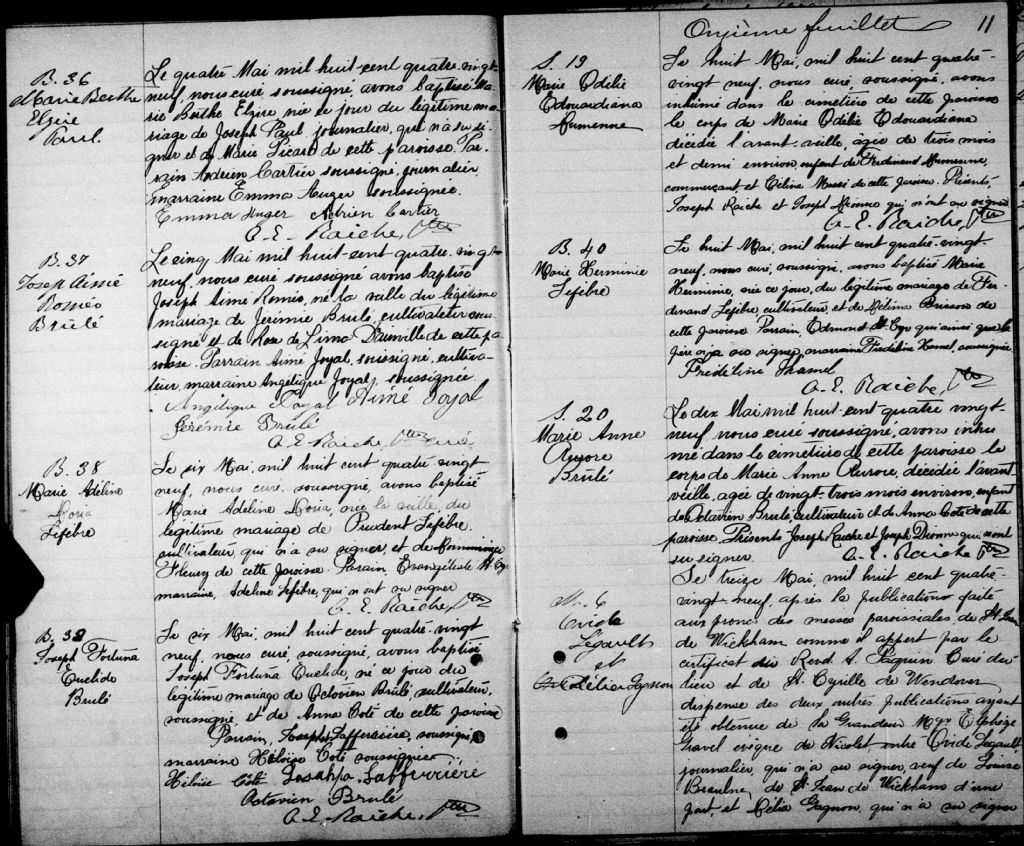 B. 36
Marie Berthe
Elzire
Paul.
Le quatre Mai mil huit-cent quatre-vingt-
neuf, nous curé soussigné, avons baptisé Ma-
rie Berthe Elzire née ce jour du légitime ma-
riage de Joseph Paul journalier, qui n'a su si-
gner et de Marie Picard de cette paroisse. Par-
rain Adrien Cartier soussigné, journalier,
marraine Emma Auger soussignée.
Emma Auger Adrien Cartier
A. E. Raiche, Ptre
B. 37
Josep Aimé
Roméo
Brulé
Le cinq Mai mil huit-cent quatre-vingt-
neuf, nous curé soussigné avons baptisé
Joseph Aimé Roméo, né la veille du légitime
mariage de Jérémie Brulé, cultivateur sous-
signé et de Rose de Lima Dainville de cette pa-
roisse. Parrain Aimé Joyal, soussigné, cultiva-
teur, marraine Angélique Joyal, soussignée
Angélique Joyal Aimé Joyal
Jérémie Brulé
A. E. Raiche, Ptre curé
B. 38
Marie Adéline
Doria
Lefebre
Le six Mai, mil huit cent quatre-vingt
neuf, nous curé, soussigné, avons baptisé
Marie Adeline Doria, née la veille, du
légitime mariage de Prudent Lefebre,
cultivateur, qui n'a su signer, et de
Fleury de cette paroisse. Parain, Evangéliste St Cyr
marraine, Adeline Lefebre, qui n'ont su signer
A. E. Raiche, Ptre
B. 39
Joseph Fortuna
Euclide
Brulé
Le six Mai, mil huit cent quatre-vingt
neuf, nous curé, soussigné, avons baptisé
Joseph Fortuna Euclide, né ce jour du
légitime mariage de Octavien Brulé cultivateur,
soussigné, et de Anna Coté de cette paroisse
Parrain, Joseph Lafferrière, soussigné,
marraine Héloïse Coté soussignée
Héloise Coté Josehpa Lafferrière
Octavien Brulé
A. E. Raiche, Ptre
Onzième feuillet 11
S. 19
Marie Odélie
Edouardiana
Le huit Mai, mil huit cent quatre-
vingt neuf, nous curé, soussigné, avons
inhumé dans le cimetière de cette paroisse
le corps de Marie Odélie Edouardiana
décédée l'avant-veille, âgée de trois mois
et demi environ enfant de Ferdinand
commerçant et Céline Massé de cette paroisse. Présents,
Joseph Raiche et Joseph Dionne qui n'ont su signer
A. E. Raiche, Ptre
B. 40
Marie Herminie
Lefebre
Le huit Mai, mil huit cent quatre-vingt-
neuf, nous curé, soussigné, avons baptisé Marie
Herminie, née ce jour, du légitime mariage de Fer-
dinand Lefebre, cultivateur, et de Mélina Brisson de
cette paroisse Parrain, Edmond St-Cyr qui ainsi que le
père n'a su signer, marraine Fredeline Hamel, soussignée
Frédeline Hamel
A. E. Raiche, Ptre
S. 20
Marie Anne
Aurore
Brulé
Le dix Mai mil huit-cent-quatre vingt-
neuf, nous curé soussigné, avons inhu-
mé dans le cimetière de cette paroisse le
corps de Marie Anne Aurore, décédée l'avant-
veille, agée de vingt-trois mois environ, enfant
de Octavien Brulé, cultivateur et de Anna Coté de cette
paroisse, Présents Joseph Raiche et Joseph Dionne qui n'ont
su signer. A. E. Raiche Ptre
M. 6
Ovide
Légault
et
Délia Gagnon
Le treize Mai, mil huit cent quatre-
vingt-neuf, après la publication faite
aux prônes des messes paroissiales de St Jean
de Wickham comme il appert par le
certificat du Revd A. Paquin Curé du
lieu et de St. Cyrille de Wendover
dispense des deux autres publications ayant
été obtenue de Sa Grandeur Mgr Elphège
Gravel évêque de Nicolet entre Ovide Légault
journalier, qui n'a su signer, veuf de Louise
Beaulne, de St. Jean de Wickham d'une
part, et Délia Gagnon, qui n'a su signer